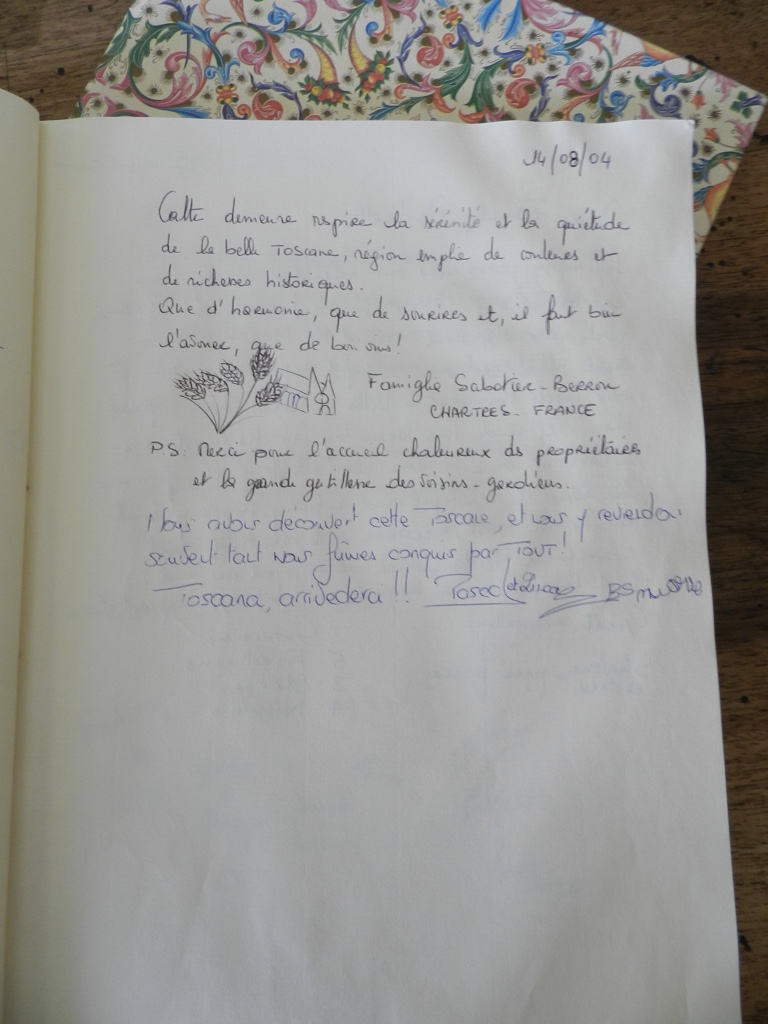 14/08/04
Cette demeure respire la sérénité et la quiétude
de la belle Toscane, région emplie de couleurs et
de richesses historiques.
Que d'harmonie, que de sourires et, il faut bien
l'avouer, que de bon vins!
Famiglia Sabatier-Berron
CHARTRES - FRANCE
P.S: Merci pour l'accueil chaleureux des propriétaires
et la grande gentillesse des voisins-gardiens.
Nous avons découvert cette Toscane, et nous y reviendrons
tant nous fûmes conquis par TOUT!
Toscana, arrivederci !!